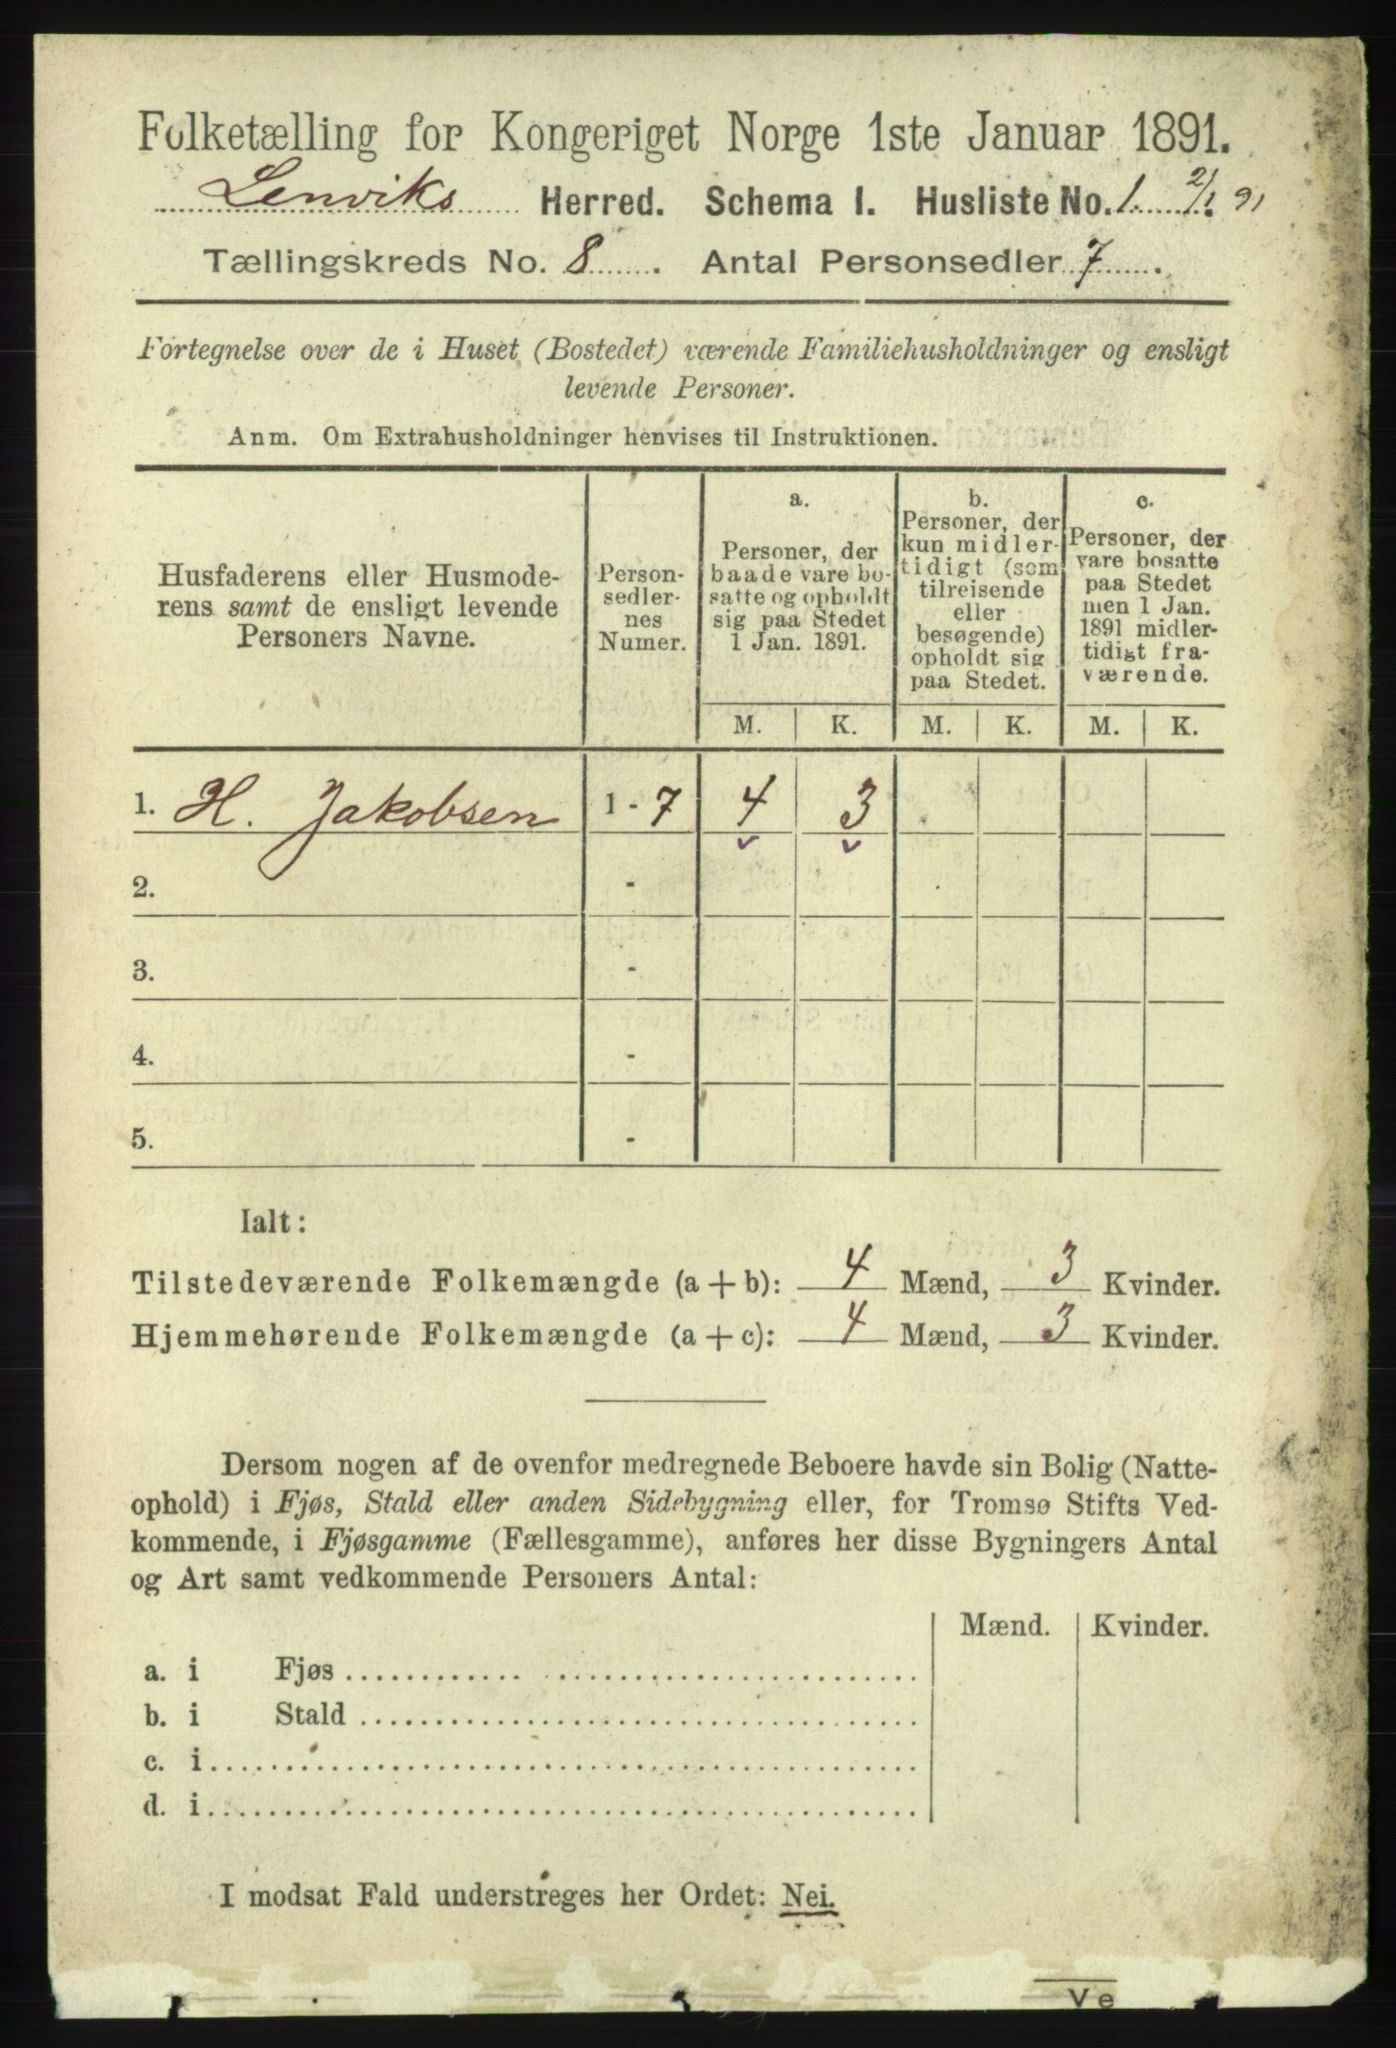 Folketælling for Kongeriget Norge 1ste Januar 1891.
Lenviks Herred. Schema I. Husliste No. 1. 2/1 91
Tællingskreds No. 8. Antal Personsedler 7.
Fortegnelse over de i Huset (Bostedet) værende Familiehusholdninger og ensligt
levende Personer.
Anm. Om Extrahusholdninger henvises til Instruktionen.
Husfaderens eller Husmode-
rens samt de ensligt levende
Personers Navne.
Person-
sedler-
nes
Numer.
a.
Personer, der
baade vare bo-
satte og opholdt
sig paa Stedet
1 Jan. 1891.
b.
Personer, der
kun midler-
tidigt (som
tilreisende
eller
besøgende)
opholdt sig
paa Stedet.
c.
Personer, der
vare bosatte
paa Stedet
men 1 Jan.
1891 midler-
tidigt fra-
værende.
M. K. M. K. M. K.
1. H. Jakobsen 1 - 7 4 3
2. -
3. -
4. -
5. -
Ialt:
Tilstedeværende Folkemængde (a + b): 4 Mænd, 3 Kvinder.
Hjemmehørende Folkemængde (a + c): 4 Mænd, 3 Kvinder.
Dersom nogen af de ovenfor medregnede Beboere havde sin Bolig (Natte-
ophold) i Fjøs, Stald eller anden Sidebygning eller, for Tromsø Stifts Ved-
kommende, i Fjøsgamme (Fællesgamme), anføres her disse Bygningers Antal
og Art samt vedkommende Personers Antal:
Mænd. Kvinder.
a. i Fjøs
b. i Stald
c. i
d. i
I modsat Fald understreges her Ordet: Nei.
Ve